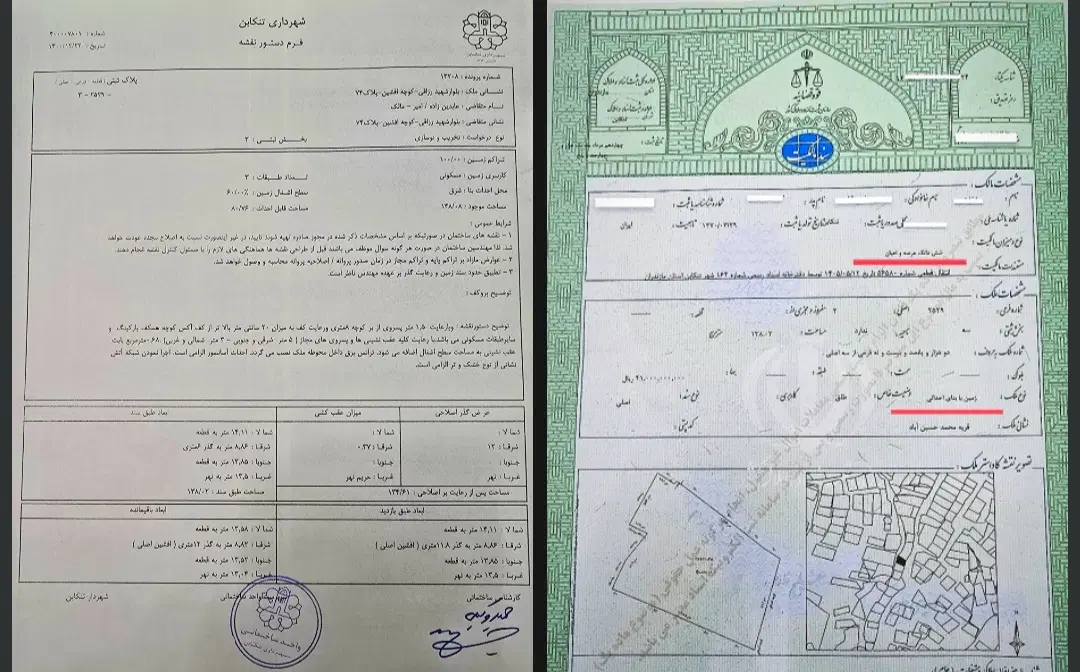 شهرداری تنکابن
فرم دستور نقشه
شماره : ۴۰۰۰۰۷۸۰۱
تاریخ : ۱۴۰۰/۱۲/۲۲
شماره پرونده : ۱۳۲۰۸
پلاک ثبتی ( قطعه - فرعی - اصلی )
- ۲۵۲۹ - ۳
نشانی ملک : بلوارشهید رزاقی-کوچه افشین-پلاک۷۴
نام متقاضی : عابدین زاده / امیر - مالک
نشانی متقاضی : بلوارشهید رزاقی-کوچه افشین-پلاک۷۴
نوع درخواست : تخریب و نوسازی
بخش ثبتی : ۳
تراکم زمین : ۱۰۰/۰۰
تعداد طبقات : ۳
کاربری زمین : مسکونی
سطح اشغال زمین : ۶۰/۰۰٪
محل احداث بنا : شرق
مساحت قابل احداث : ۸۰/۷۶
مساحت موجود : ۱۳۸/۰۸
شرایط عمومی :
۱ - نقشه های ساختمان در صورتیکه بر اساس مشخصات ذکر شده در مجوز صادره تهیه شوند تایید، در غیر اینصورت نسبت به اصلاح مجدد عودت خواهد
شد. لذا مهندسین ساختمان در صورت هر گونه سوال موظف می باشند قبل از طراحی نقشه ها هماهنگی های لازم را با مسئول کنترل نقشه انجام دهند.
۲ - عوارض مازاد بر تراکم پایه و تراکم مجاز در زمان صدور پروانه / اصلاحیه پروانه محاسبه و وصول خواهد شد.
۳ - تطبیق حدود سند زمین و رعایت گذر بر عهده مهندس ناظر است.
توضیح بروکف :
توضیح دستورنقشه : وبارعایت ۱,۵ متر پسروی از بر کوچه ۸متری ورعایت کف به میزان ۲۰ سانتی متر بالا تر از کف آکس کوچه همکف پارکینگ و
سایرطبقات مسکونی می باشد.با رعایت کلیه عقب نشینی ها و پسروی های مجاز ( ۵ متر شرقی و جنوبی - ۳ متر شمالی و غربی) ۰.۶۸مترمربع بابت
عقب نشینی به مساحت سطح اشغال اضافه می شود. ترانس برق داخل محوطه ملک نصب می گردد. احداث آسانسور الزامی است. اجرا نمودن شبکه آتش
نشانی از نوع خشک و تر الزامی است.
عرض گذر اصلاحی
میزان عقب کشی
ابعاد طبق سند
شمالا :
شمالا :
شمالا : ۱۴,۱۱ متر به قطعه
شرقا : ۱۲
شرقا : ۰.۳۷
شرقا : ۸,۸۶ متر به گذر ۶متری
جنوبا :
جنوبا :
جنوبا : ۱۳,۸۵ متر به قطعه
غربا : نهر
غربا : حریم نهر
غربا : ۱۳,۵ متر به نهر
مساحت پس از رعایت بر اصلاحی : ۱۳۴/۶۱
مساحت طبق سند : ۱۳۸/۰۲
ابعاد طبق بازدید
ابعاد باقیمانده
شمالا : ۱۴,۱۱ متر به قطعه
شمالا : ۱۳,۵۸ متر به قطعه
شرقا : ۸,۸۶ متر به گذر ۱۱.۸متری ( افشین اصلی )
شرقا : ۸,۸۲ متر به گذر ۱۲متری ( افشین اصلی )
جنوبا : ۱۳,۸۵ متر به قطعه
جنوبا : ۱۳,۵۲ متر به قطعه
غربا : ۱۳,۵ متر به نهر
غربا : ۱۳,۰۴ متر به نهر
کارشناس ساختمانی
شهردار تنکابن
قوه قضائیه
سند مالکیت
مشخصات مالک :
نام :
نام خانوادگی :
نام پدر :
شماره شناسنامه یا ثبت :
شماره یا شناسه ملی :
محل صدور یا ثبت :
تاریخ تولد یا ثبت :
تابعیت : ایران
نوع و میزان مالکیت : شش دانگ عرصه و اعیان
مستندات مالکیت : انتقال قطعی شماره ۵۶۵۸۰ تاریخ ۱۴۰۵/۰۵/۱۲ توسط دفترخانه اسناد رسمی شماره ۱۶۲ شهر تنکابن استان مازندران
مشخصات ملک :
اصلی : ۲۵۲۹
مفروز و مجزی از : ۲
بخش ثبتی : سه
ناحیه : ندارد
مساحت : ۱۳۸/۰۲ مترمربع
شماره ملک به حروف : دو هزار و پانصد و بیست و نه فرعی از سه اصلی
بلوک :
سمت :
طبقه :
بها : ۴۱,۰۰۰,۰۰۰,۰۰۰ ریال
نوع ملک : زمین با بنای احداثی
وضعیت خاص : طلق
کاربری :
نوع سند : اصلی
نشانی ملک : قریه محمد حسین آباد
کد پستی :
تصویر نقشه کاداستر ملک :